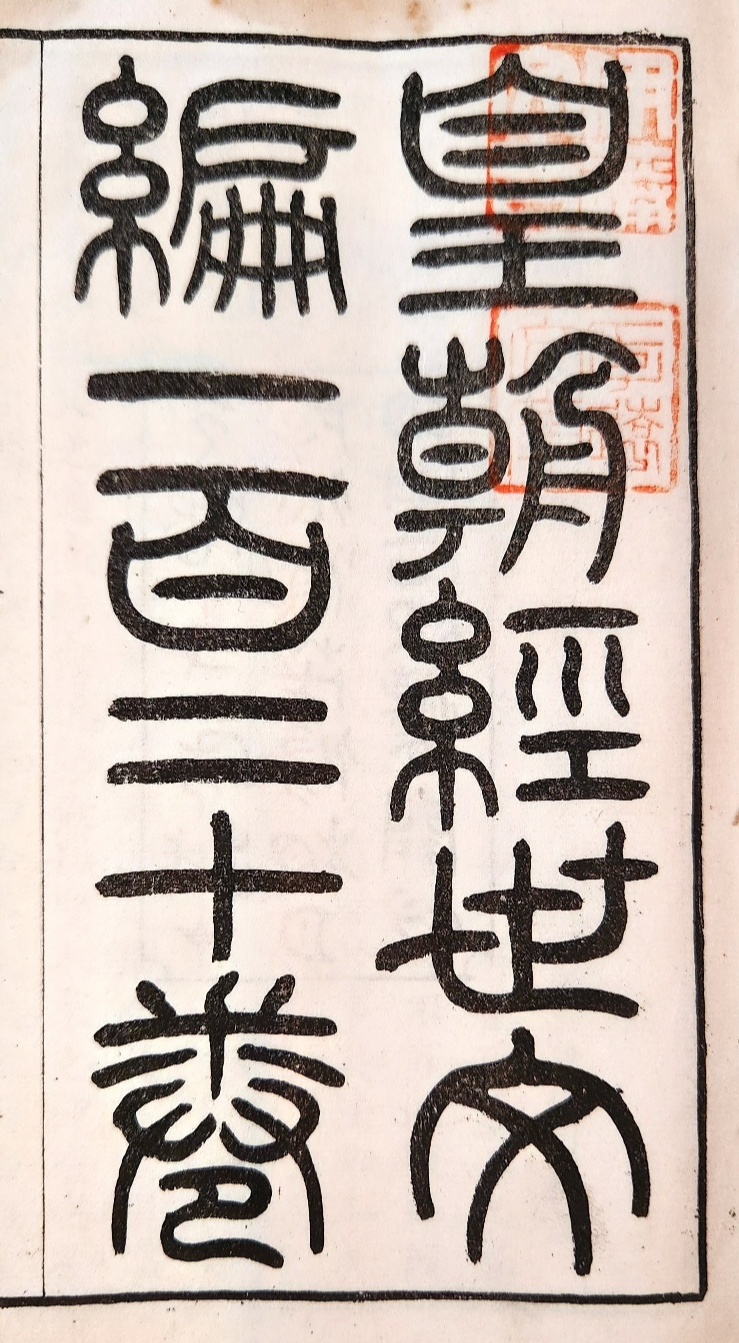 皇朝經世文
編一百二十卷